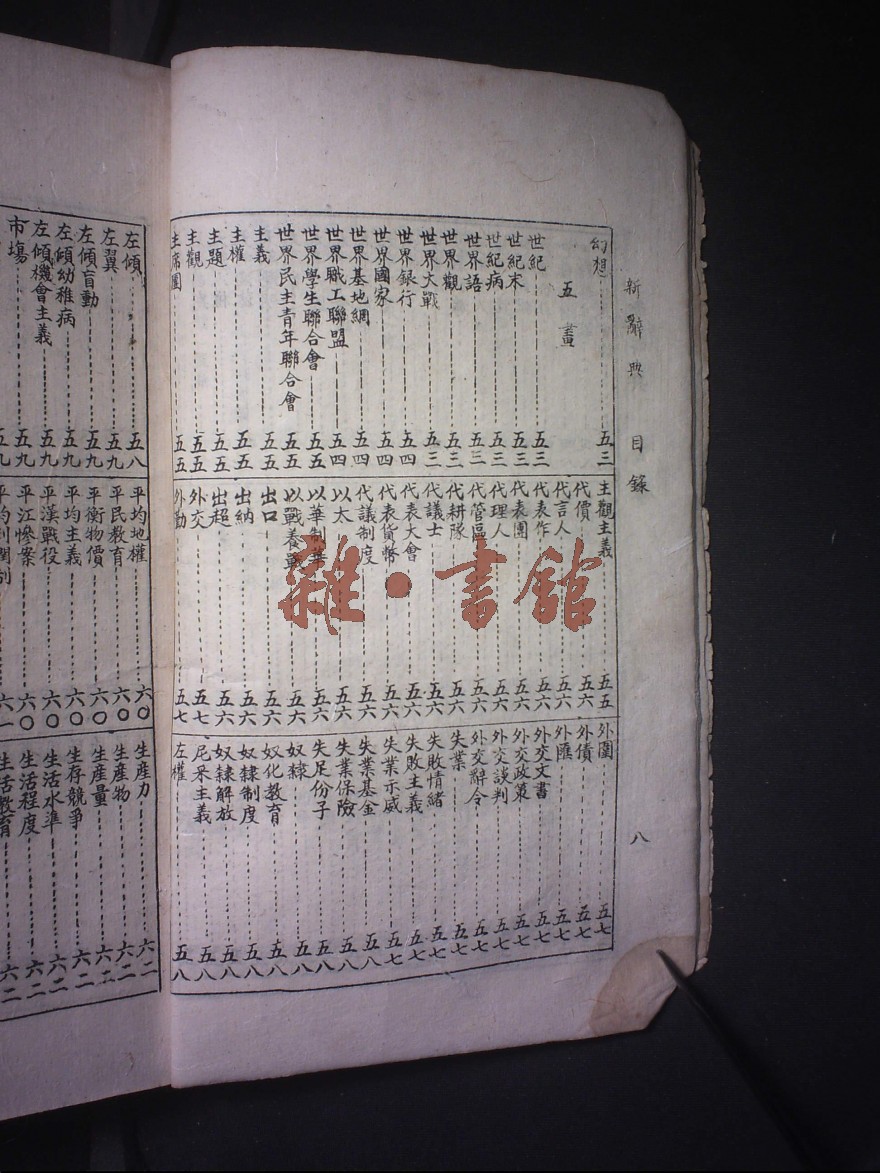 新辭典 目錄 八
幻想 五三
五畫
世紀 五三
世紀末 五三
世紀病 五三
世界語 五三
世界觀 五三
世界大戰 五三
世界銀行 五四
世界國家 五四
世界基地網 五四
世界職工聯盟 五四
世界學生聯合會 五五
世界民主青年聯合會 五五
主義 五五
主權 五五
主題 五五
主觀 五五
主席團 五五
主觀主義 五五
代價 五六
代言人 五六
代表作 五六
代表團 五六
代理人 五六
代管區 五六
代耕隊 五六
代議士 五六
代表大會 五六
代表貨幣 五六
代議制度 五六
以太 五六
以華制華 五六
以戰養戰 五六
出口 五六
出納 五六
出超 五六
外交 五七
外勤 五七
外圍 五七
外債 五七
外匯 五七
外交文書 五七
外交政策 五七
外交談判 五七
外交辭令 五七
失業 五七
失敗情緒 五七
失敗主義 五七
失業示威 五七
失業基金 五八
失業保險 五八
失足份子 五八
奴隸 五八
奴化教育 五八
奴隸制度 五八
奴隸解放 五八
尼采主義 五八
左權 五八
左傾 五八
左翼 五九
左傾盲動 五九
左傾幼稚病 五九
左傾機會主義 五九
市場 五九
平均地權 六〇
平民教育 六〇
平衡物價 六〇
平均主義 六〇
平漢戰役 六〇
平江慘案 六〇
六一
生產力 六二
生產物 六二
生產量 六二
生存競爭 六二
生活水準 六二
生活程度 六二
生活教育 六二
雜·書館